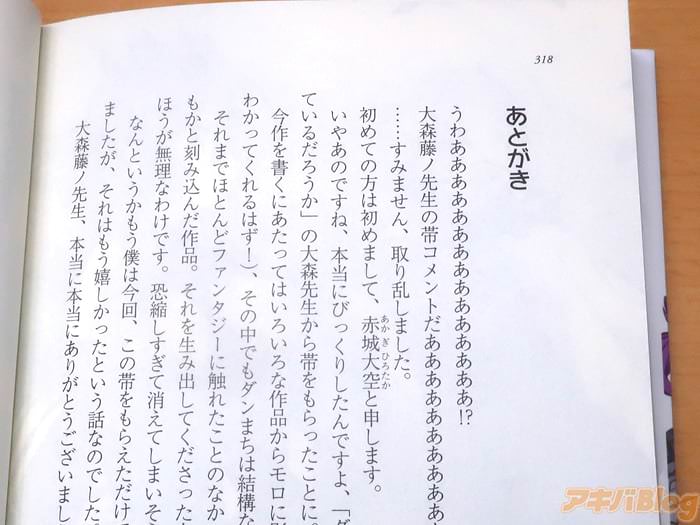 318
あとがき
うわあああああああああああああああ!?
大森藤ノ先生の帯コメントだああああああああああ
……すみません、取り乱しました。
初めての方は初めまして、赤城大空と申します。
あかぎひろたか
いやあのですね、本当にびっくりしたんですよ、「ダ
ているだろうか」の大森先生から帯をもらったことに。
今作を書くにあたってはいろいろな作品からモロに影
わかってくれるはず！）、その中でもダンまちは結構な
それまでほとんどファンタジーに触れたことのなか
もかと刻み込んだ作品。それを生み出してくださった
ほうが無理なわけです。恐縮しすぎて消えてしまいそ
なんというかもう僕は今回、この帯をもらえただけ
ましたが、それはもう嬉しかったという話なのでした
大森藤ノ先生、本当に本当にありがとうございまし
アキバBlog